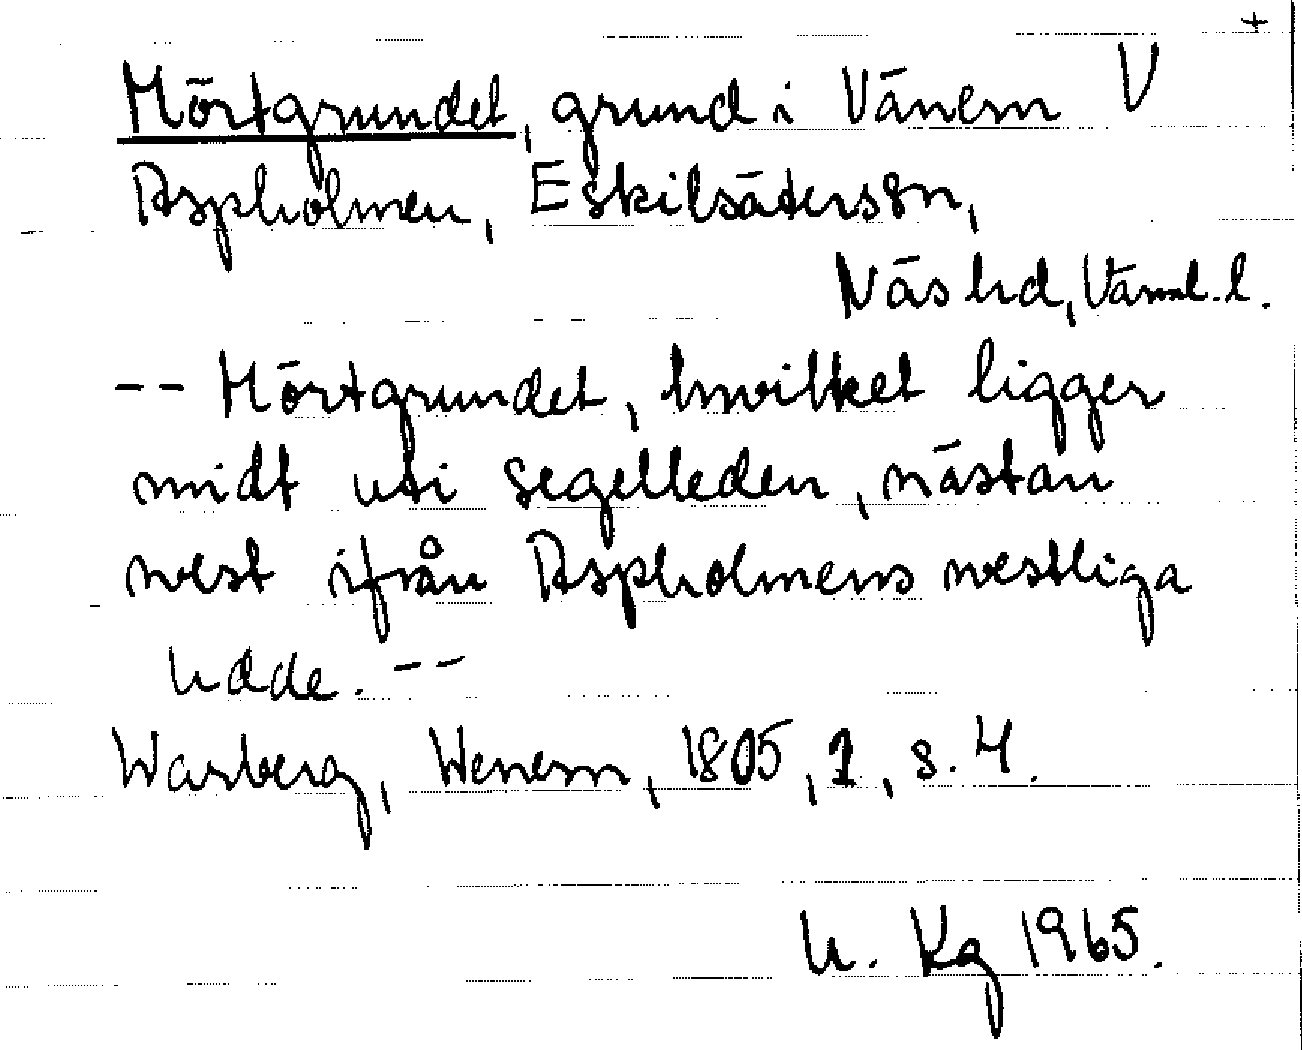 +
Mörtgrundet, grund i Vänern V
Aspholmen, Eskilsäterssn,
Näs hd, Värml. l.
-- Mörtgrundet, hwilket ligger
midt uti segelleden, nästan
west ifrån Aspholmens westliga
udde. --
Warberg, Wenern, 1805, 1, s. 4.
U. Kg 1965.